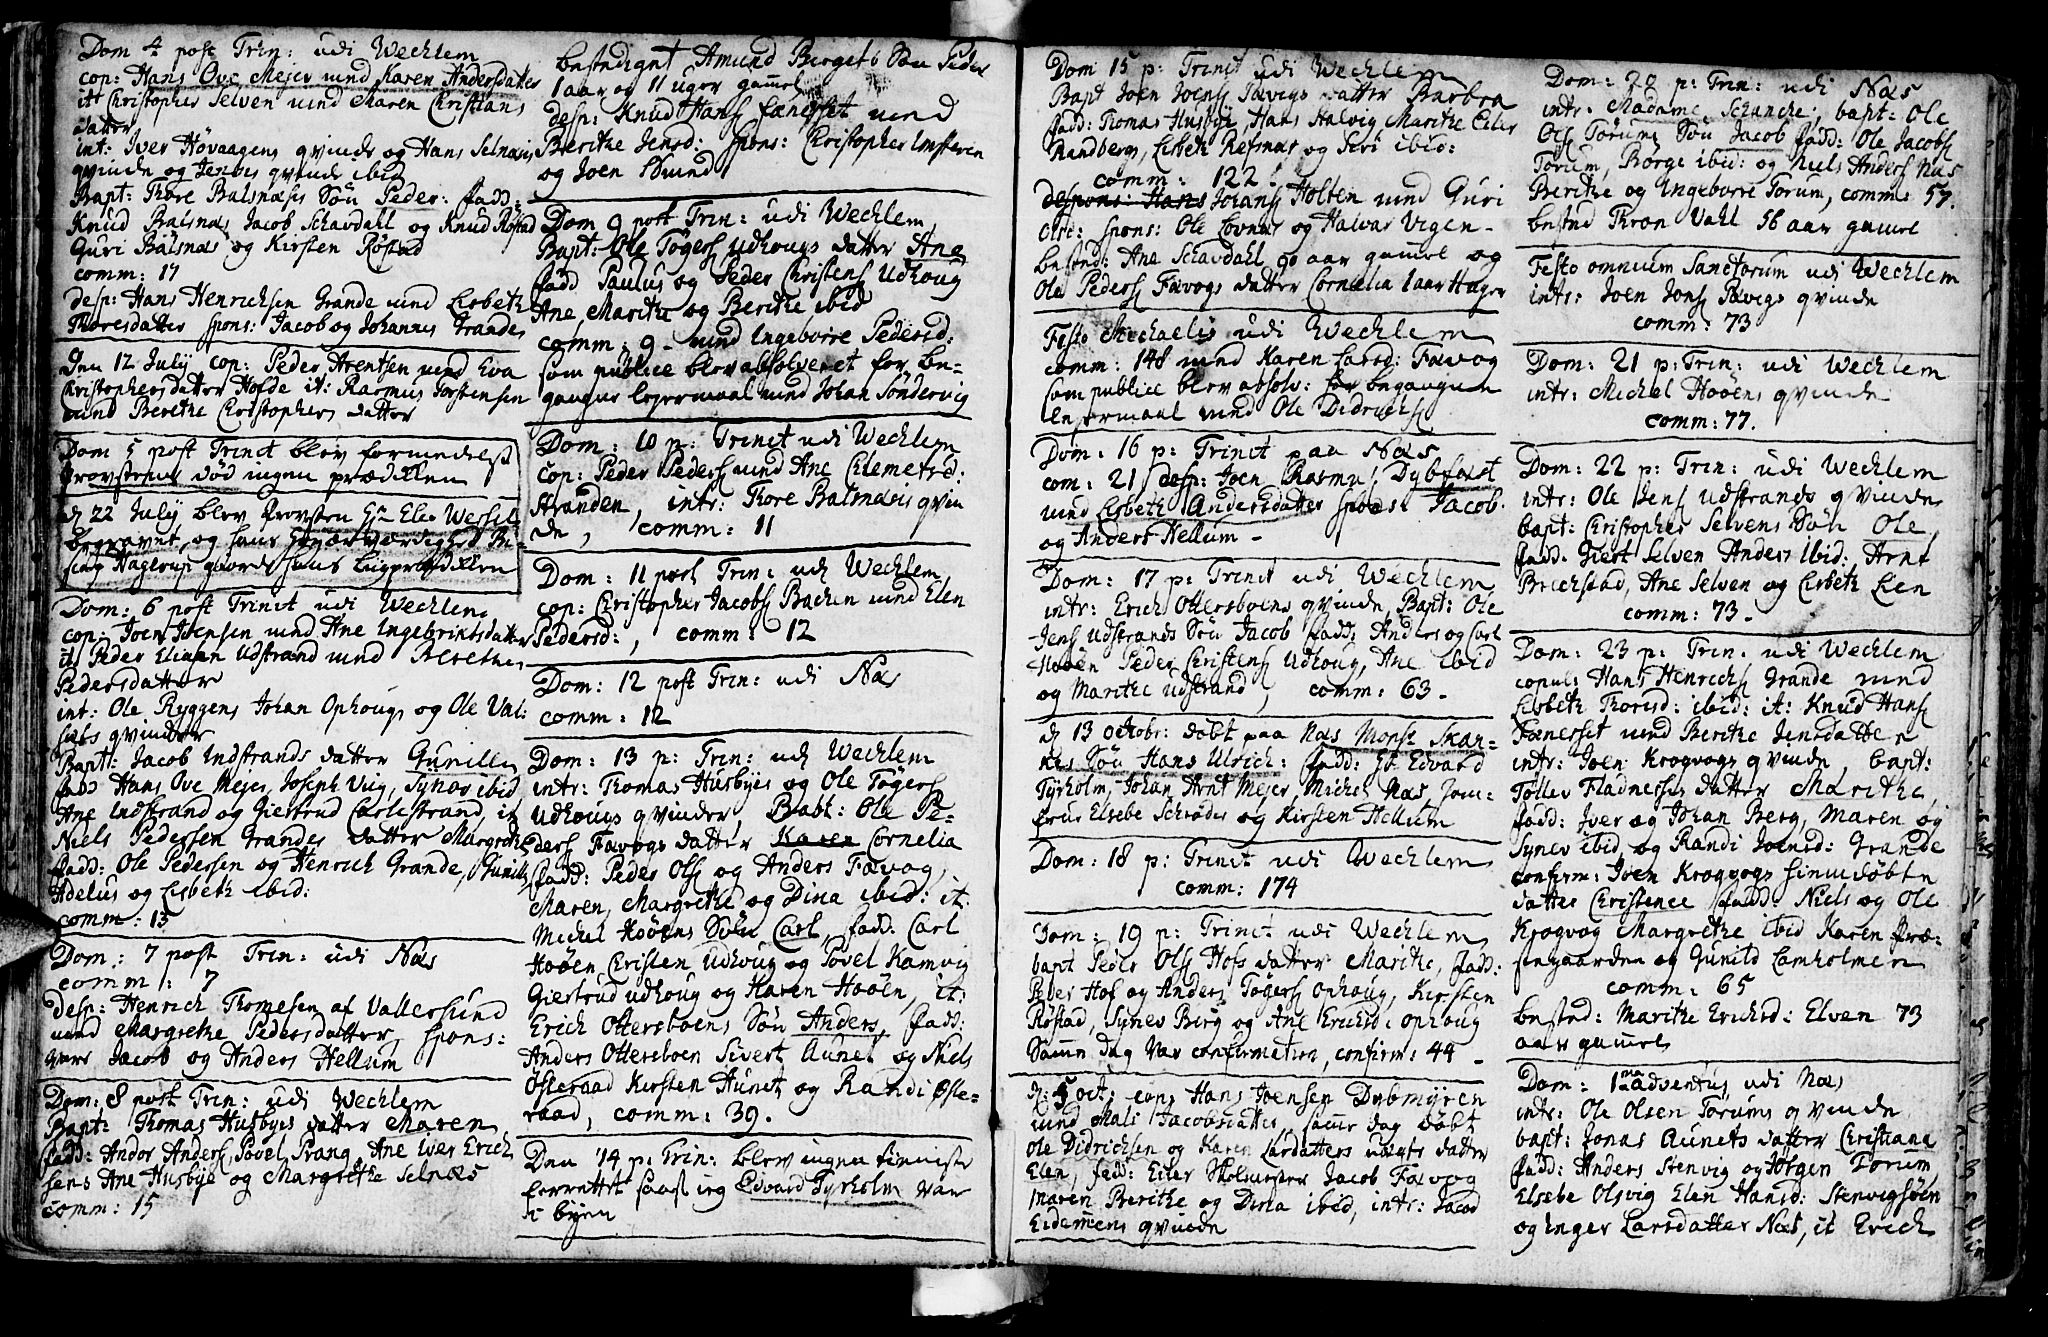 Dom 4 post Trin: udi Wechlem
cop: Hans Ove Mejer med Karen Andersdatter
it Christopher Selven med Maren Christians
datter
int: Iver Høvaagens qvinde og Hans Selnæsis
qvinde og Jenses qvinde ibid
Bapt: Thore Balsnæsis Søn Peder: fadd:
Knud Balsnæs, Jacob Schavdahl og Knud Røstad
Guri Balsnæs og Kirsten Røstad
comm: 17
desp: Hans Henrichsen Grande med Lisbeth
Thoresdatter spons: Jacob og Johannes Grande
Den 12 July cop: Peder Arentsen med Eva
Christophersdatter Hofde it: Rasmus Torstensen
med Berethe Christophers datter
Dom 5 post Trinit blev formedelst
Provstens død ingen prædiken
d 22 July blev Provsten Hr Eler Wessel
begravet, og hans
Hagerup giorde hans Liigprædiken
Dom: 6 post Trinit udi Wechlem
cop: Joen Joensen med Ane Ingebrictsdatter
it Peder Eliasen Udstrand med Berethe
Pedersdatter
int: Ole Ryggens, Johan Ophougs og Ole Val:
sets qvinder
Bapt: Jacob Indstrands datter Gunille
fadd Hans Ove Mejer, Joseph Viig, Synov ibid
Ane Indstrand og Giertrud Carlestrand, it
Niels Pedersen Grandes datter Margrethe
fadd: Ole Pedersen og Henrich Grande, Gunild
Adelus og Lisbeth ibid:
comm: 13
Dom: 7 post Trin: udi Næs
comm: 7
desp: Henrich Thomesen af Vallersund
med Margrethe Pedersdatter, spons:
vare Jacob og Anders Hellum
Dom: 8 post Trin: udi Wechlem
Bapt: Thomas Husbyes datter Maren
fadd: Andor Anders, Povel Prang, Ane Iver Erich
sens Ane Husbye og Margrethe Selnæs
comm: 15
bestediget Amund Berget6 Søn Peder
1 aar og 11 uger gamel
desp: Knud Hans Fæneset med
Berithe Jensd: Spons: Christopher
og Joen Smed
Dom 9 post Trin: udi Wechlem
Bapt: Ole Tøgers Udhougs datter Ane
fadd Paulus og Peder Christens Udhoug
Ane, Marithe og Berithe ibid
comm: 9 - med Ingeborre Pedersd:
som publice blev absolveret for be-
gangne lejermaal med Johan Søndervig
Dom: 10 p: Trinit udi Wechlem
cop: Peder Peders med Ane Clemetsd:
Stranden, intr: Thore Balsnæsis qvin
de, comm: 11
Dom: 11 post Trin: udi Wechlem
cop: Christopher Jacobs Bachen med Elen
Pedersd:, comm: 12
Dom: 12 post Trin: udi Næs
comm: 12
Dom: 13 p: Trin: udi Wechlem
intr: Thomas Husbyes og Ole Tøgers
Udhougs qvinder, Bapt: Ole Pe-
ders Fævogs datter Karen Cornelia
fadd: Peder Ols og Anders Fævog,
Maren, Margrethe og Dina ibid: it:
Michel Hoøens Søn Carl, fadd: Carl
Hoøen, Christen Udhoug og Povel Kamvig
Giertrud Udhoug og Karen Hoøen, it:
Erich Ottersboens Søn Anders, fadd:
Anders Ottersboen Sivert Aunet og Niels
Østeraad Kirsten Aunet, og Randi Øste-
raad, comm: 39.
Den 14 p: Trin: blev ingen tieniste
forrettet saasom ieg Edvard Tyrholm var
i byen
Dom 15 p: Trinit udi Wechlem
Bapt Joen Joens Fævogs datter Barbra
fadd: Thomas Husbye, Hans Halvig Marithe Eiler
Randberg, Lisbeth Refsnæs og Siri ibid:
comm: 122.
despons: Hans Johans Holten med Guri
Olsd: spons: Ole Lovnæs og Halvar Vigen -
bested: Ane Schavdahl 90 aar gamel og
Ole Peders Fævogs datter Cornelia 1 aar
Festo Michaelis udi Wechlem
comm: 148 med Karen Larsd: Fævog
som publice blev absolv: for begangne
lejermaal med Ole Didrichs
Dom: 16 p: Trinit paa Næs
com: 21 desp: Joen Rasmus Dybfæst
med Lisbeth Andersdatter spons: Jacob
og Anders Hellum -
Dom: 17 p: Trinit udi Wechlem
intr: Erich Ottersboens qvinde, Bapt: Ole
Jens Udstrands Søn Jacob fadd: Anders og Carl
Hoøen Peder Christens Udhoug, Ane ibid
og Marithe Udstrand, comm: 63 -
d 13 octobr: døbt paa Næs Monsr Skan-
kes Søn Hans Ulrich: fadd: Hr Edvard
Tyrholm, Johan Arnt Mejer, Michel Næs Jom-
frue Elsebe Schrøder og Kirsten Hellum
Dom: 18 p: Trinit udi Wechlem
comm: 174
Dom: 19 p: Trinit udi Wechlem
bapt Peder Ols Hofs datter Marithe, fadd:
Peder Hof og Anders Tøgers Ophoug, Kirsten
Røstad, Synev Berg og Ane Erichsd: Ophoug
Samme dag var confirmation, confirm: 44 -
d: 5 oct: cop: Hans Joensen Dybmyren
med Mali Jacobsdatter, samme dag døbt
Ole Didrichsen og Karen Larsdatters uægte datter
Elen, fadd: Eiler Skolemester Jacob Fævog
Maren Berithe og Dina ibid, intr: Jacob
Eidemens qvinde
Dom: 20 p: Trin: udi Næs
intr: Madame Schancke; bapt: Ole
Ols Torums Søn Jacob fadd: Ole Jacobs
Torum, Børge ibid: og Niels Anders Næs
Berithe og Ingeborre Torum, comm: 57.
bested Thron Vahl 56 aar gamel
Festo omnium Sanctorum udi Wechlem
intr: Joen Jons Fævigs qvinde
comm: 73
Dom: 21 p: Trin: udi Wechlem
intr: Michel Hoøens qvinde
comm: 77.
Dom: 22 p: Trin: udi Wechlem
intr: Ole Jens Udstrands qvinde
bapt: Christopher Selvens Søn Ole,
fadd: Giert Selven Anders ibid: Arnt
Brechstad, Ane Selven og Lisbeth Lien
comm: 73 -
Dom: 23 p: Trin: udi Wechlem
copul: Hans Henrichs Grande med
Lisbeth Thorisd: ibid: it: Knud Hans
Fæneset med Berithe Jensdatter
intr: Joen Krogvogs qvinde, bapt:
Tøllev Fladnesets datter Marithe,
fadd: Iver og Johan Berg, Maren og
Synev ibid, og Randi Joensd: Grande
confirm: Joen Krogvogs hiemdøbte
datter Christence fadd: Niels og Ole
Krogvog Margrethe ibid Karen Præ-
stegaarden og Gunild Lamholmen
comm: 65
bested: Marithe Erichsd: Elven 73
aar gamel
Dom: 1ma adventus udi Næs
intr: Ole Olsen Torums qvinde
bapt: Jonas Aunets datter Christiana
fadd: Anders Stenvig og Jørgen Torum
Elsebe Olsvig Elen Hansd: Stenvigsøen
og Inger Larsdatter Næs, it Erich